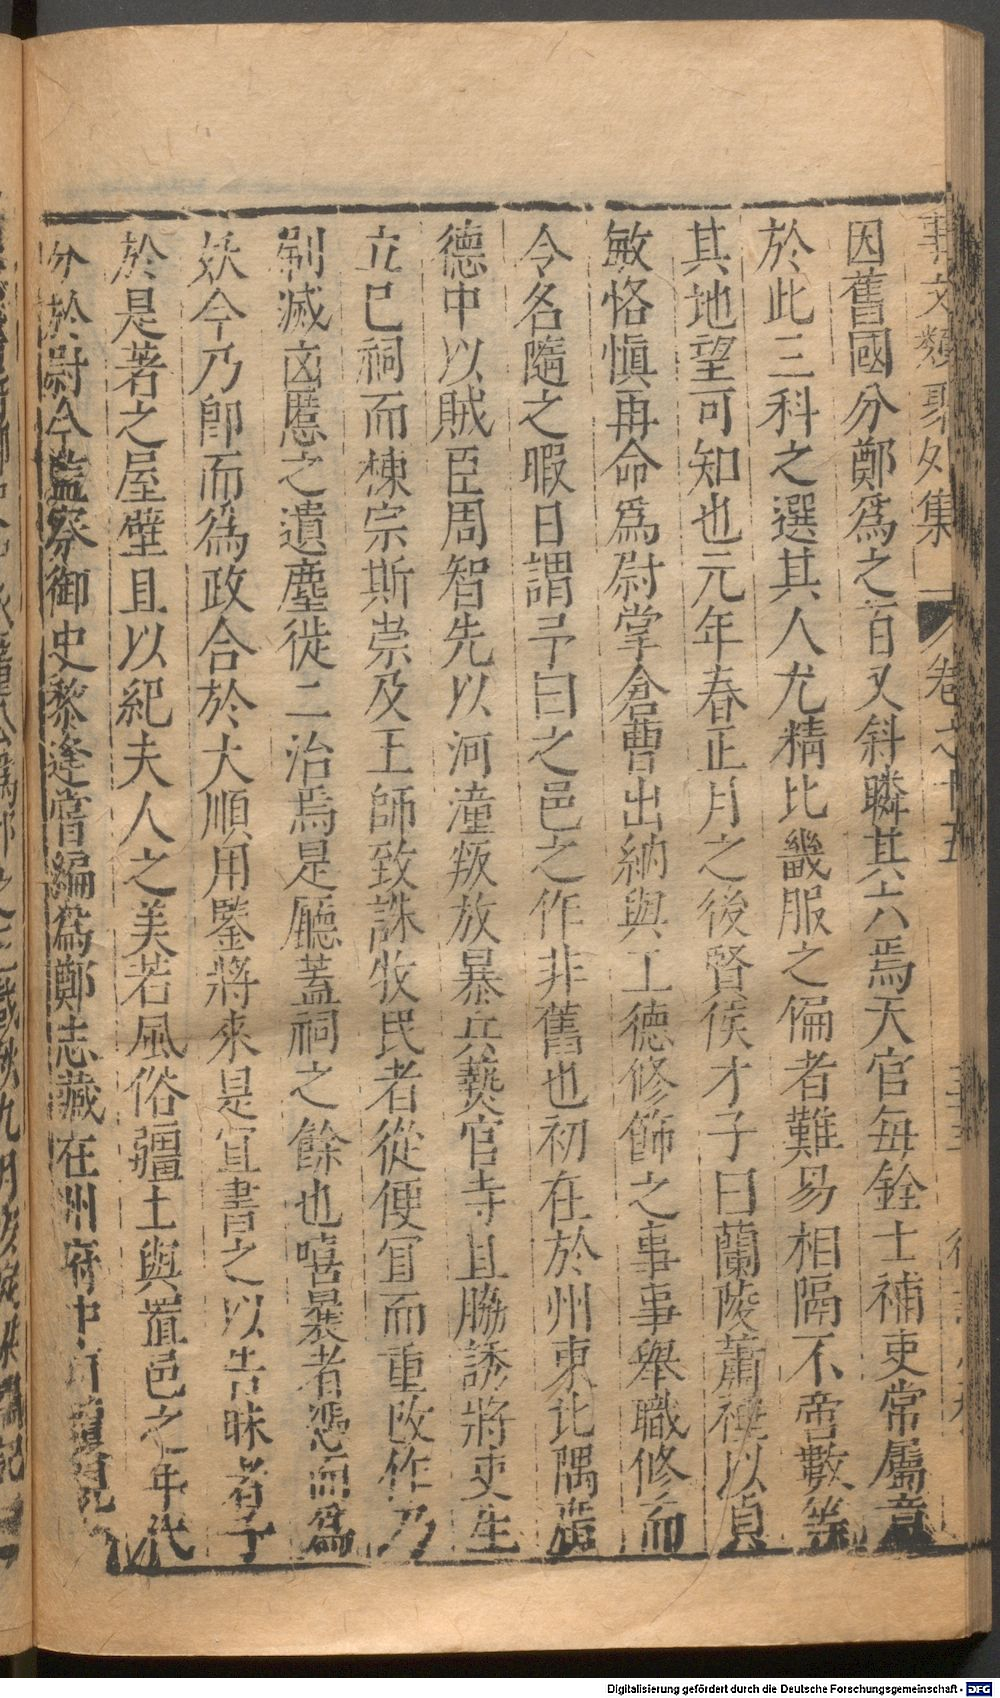 事文類聚外集 卷之十五
因舊國分鄭爲之首又斜隣其六焉天官每銓士補吏常屬意
於此三科之選其人尤精比畿服之偏者難易相隔不啻數等
其地望可知也元年春正月之後賢侯才子曰蘭陵蕭禋以貞
敏恪愼再命爲尉掌倉曹出納與工德修飾之事事舉職修而
令名隨之暇日謂予曰之邑之作非舊也初在於州東北隅廣
德中以賊臣周智先以河潼叛放暴兵爇官寺且脇誘將吏生
立巳祠而棟宗斯崇及王師致誅牧民者從便宜而重改作乃
剗滅凶慝之遺塵徙二治焉是廳蓋祠之餘也嘻曩者慝而爲
妖今乃卽而爲政合於大順用鑒將來是宜書之以告昧者予
於是著之屋壁且以紀夫人之美若風俗疆土與置邑之年代
分於尉今監察御史黎逢嘗編爲鄭志藏在州府中
Digitalisierung gefördert durch die Deutsche Forschungsgemeinschaft - DFG